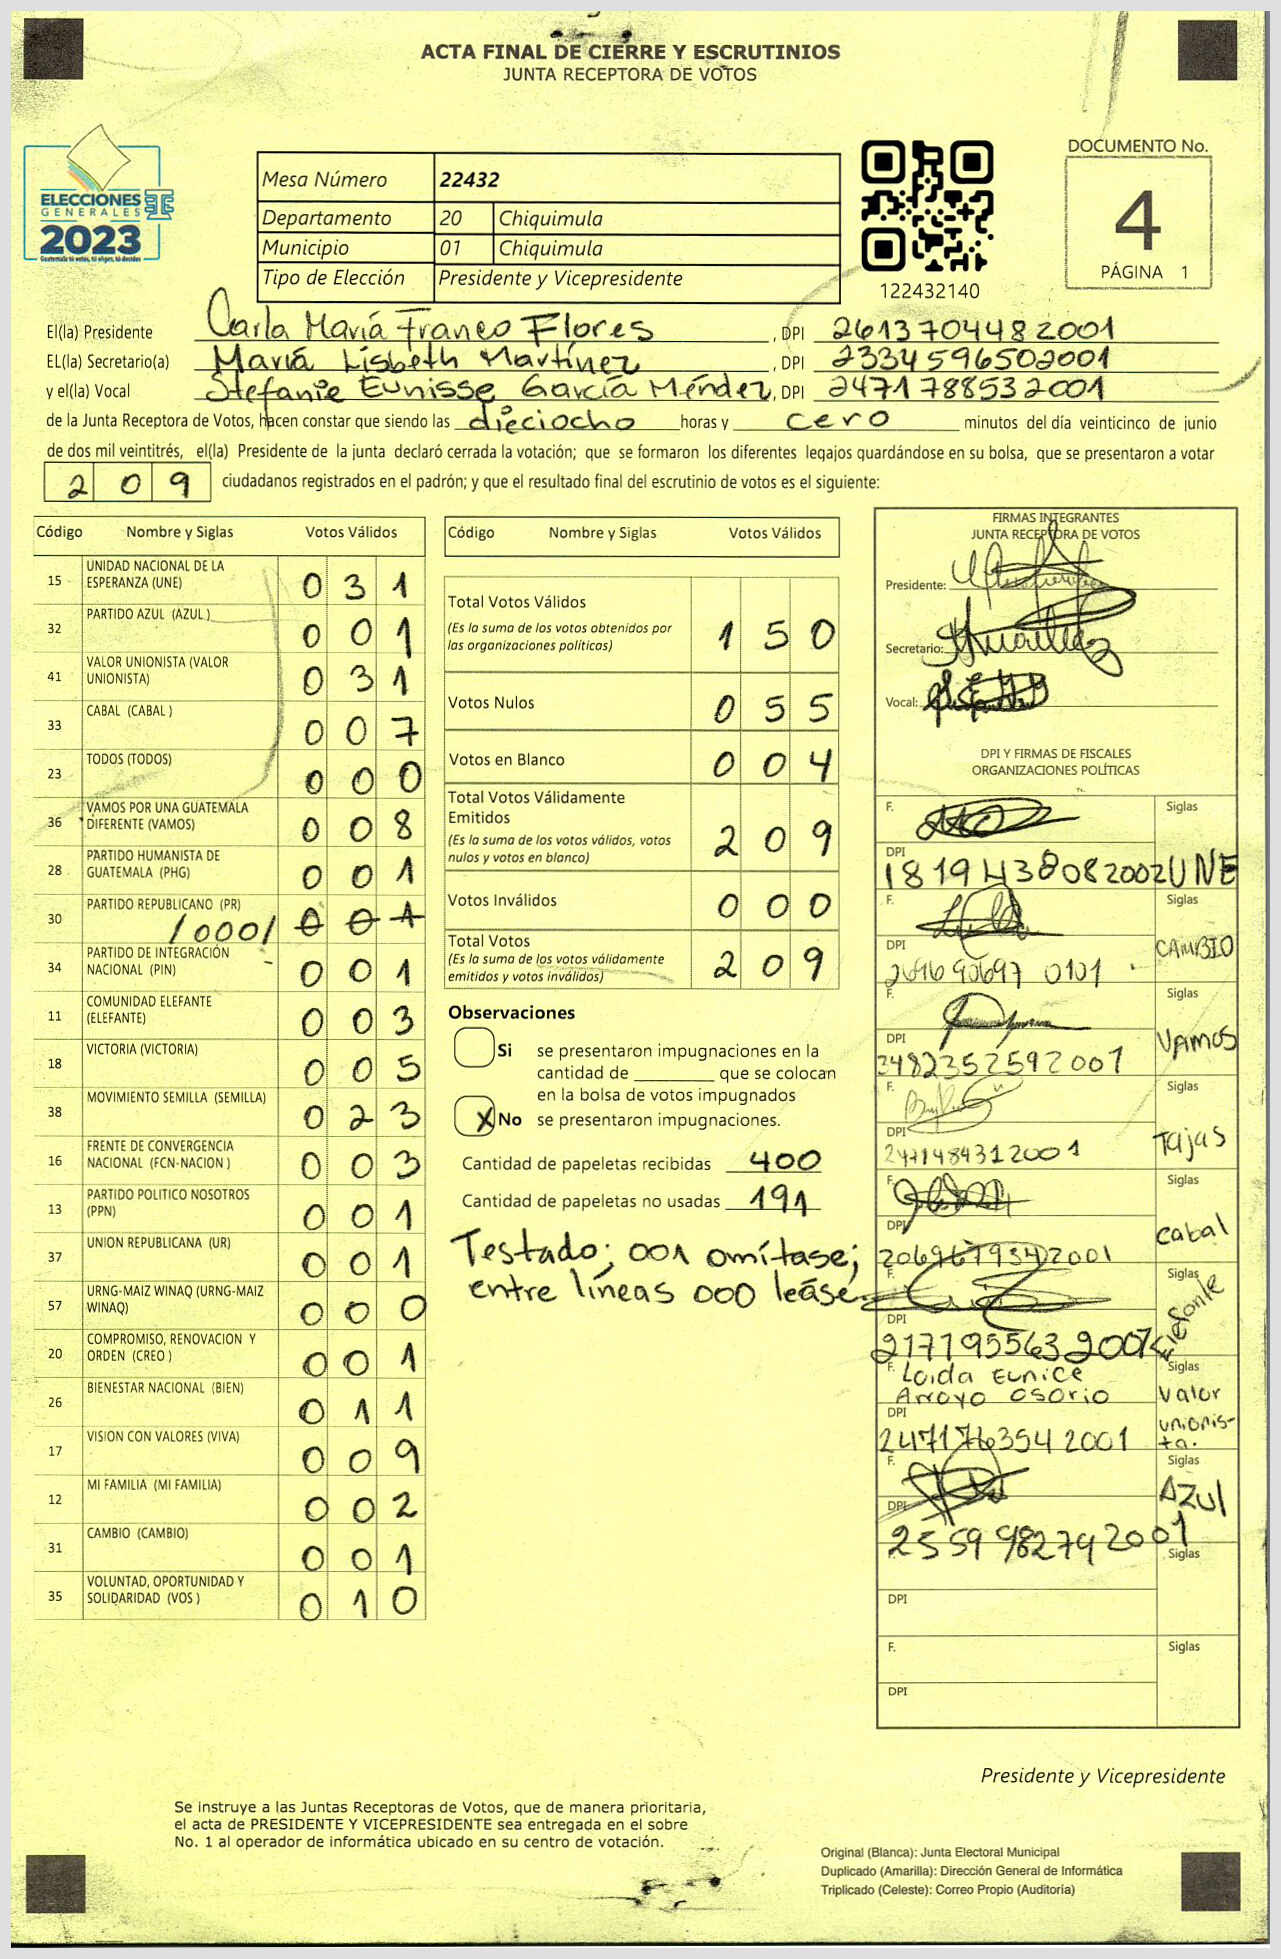 ACTA FINAL DE CIERRE Y ESCRUTINIOS
JUNTA RECEPTORA DE VOTOS
ELECCIONES
GENERALES
2023
Guatemala tú votas, tú eliges, tú decides
Mesa Número 22432
Departamento 20 Chiquimula
Municipio 01 Chiquimula
Tipo de Elección Presidente y Vicepresidente
122432140
DOCUMENTO No.
4
PÁGINA 1
El(la) Presidente Carla María Franco Flores, DPI 2613704482001
EL(la) Secretario(a) María Lisbeth Martínez, DPI 2334596502001
y el(la) Vocal Stefanie Eunisse García Méndez, DPI 2471788532001
de la Junta Receptora de Votos, hacen constar que siendo las dieciocho horas y cero minutos del día veinticinco de junio
de dos mil veintitrés, el(la) Presidente de la junta declaró cerrada la votación; que se formaron los diferentes legajos guardándose en su bolsa, que se presentaron a votar
209 ciudadanos registrados en el padrón; y que el resultado final del escrutinio de votos es el siguiente:
Código Nombre y Siglas Votos Válidos
15 UNIDAD NACIONAL DE LA ESPERANZA (UNE) 031
32 PARTIDO AZUL (AZUL ) 001
41 VALOR UNIONISTA (VALOR UNIONISTA) 031
33 CABAL (CABAL ) 007
23 TODOS (TODOS) 000
36 VAMOS POR UNA GUATEMALA DIFERENTE (VAMOS) 008
28 PARTIDO HUMANISTA DE GUATEMALA (PHG) 001
30 PARTIDO REPUBLICANO (PR) /000/ 001
34 PARTIDO DE INTEGRACIÓN NACIONAL (PIN) 001
11 COMUNIDAD ELEFANTE (ELEFANTE) 003
18 VICTORIA (VICTORIA) 005
38 MOVIMIENTO SEMILLA (SEMILLA) 023
16 FRENTE DE CONVERGENCIA NACIONAL (FCN-NACION ) 003
13 PARTIDO POLITICO NOSOTROS (PPN) 001
37 UNION REPUBLICANA (UR) 001
57 URNG-MAIZ WINAQ (URNG-MAIZ WINAQ) 000
20 COMPROMISO, RENOVACION Y ORDEN (CREO ) 001
26 BIENESTAR NACIONAL (BIEN) 011
17 VISION CON VALORES (VIVA) 009
12 MI FAMILIA (MI FAMILIA) 002
31 CAMBIO (CAMBIO) 001
35 VOLUNTAD, OPORTUNIDAD Y SOLIDARIDAD (VOS ) 010
Código Nombre y Siglas Votos Válidos
Total Votos Válidos
(Es la suma de los votos obtenidos por
las organizaciones políticas) 150
Votos Nulos 055
Votos en Blanco 004
Total Votos Válidamente
Emitidos
(Es la suma de los votos válidos, votos
nulos y votos en blanco) 209
Votos Inválidos 000
Total Votos
(Es la suma de los votos válidamente
emitidos y votos inválidos) 209
Observaciones
Si se presentaron impugnaciones en la
cantidad de ________ que se colocan
en la bolsa de votos impugnados
X No se presentaron impugnaciones.
Cantidad de papeletas recibidas 400
Cantidad de papeletas no usadas 191
Testado; 001 omítase;
entre líneas 000 leáse.
FIRMAS INTEGRANTES
JUNTA RECEPTORA DE VOTOS
Presidente:
Secretario:
Vocal:
DPI Y FIRMAS DE FISCALES
ORGANIZACIONES POLÍTICAS
F. Siglas
DPI
1819438082002 UNE
F. Siglas
DPI CAMBIO
2696906970101
F. Siglas
DPI VAMOS
3482352592001
F. Siglas
DPI Tajas
2471484312001
F. Siglas
DPI Cabal
2069679342001
F. Siglas
DPI Elefante
2177955632007
F. Loida Eunice Siglas
Arroyo Osorio Valor
DPI unionis-
2471763542001 ta.
F. Siglas
DPI Azul
2559982742001
Siglas
DPI
F. Siglas
DPI
Presidente y Vicepresidente
Se instruye a las Juntas Receptoras de Votos, que de manera prioritaria,
el acta de PRESIDENTE Y VICEPRESIDENTE sea entregada en el sobre
No. 1 al operador de informática ubicado en su centro de votación.
Original (Blanca): Junta Electoral Municipal
Duplicado (Amarilla): Dirección General de Informática
Triplicado (Celeste): Correo Propio (Auditoría)